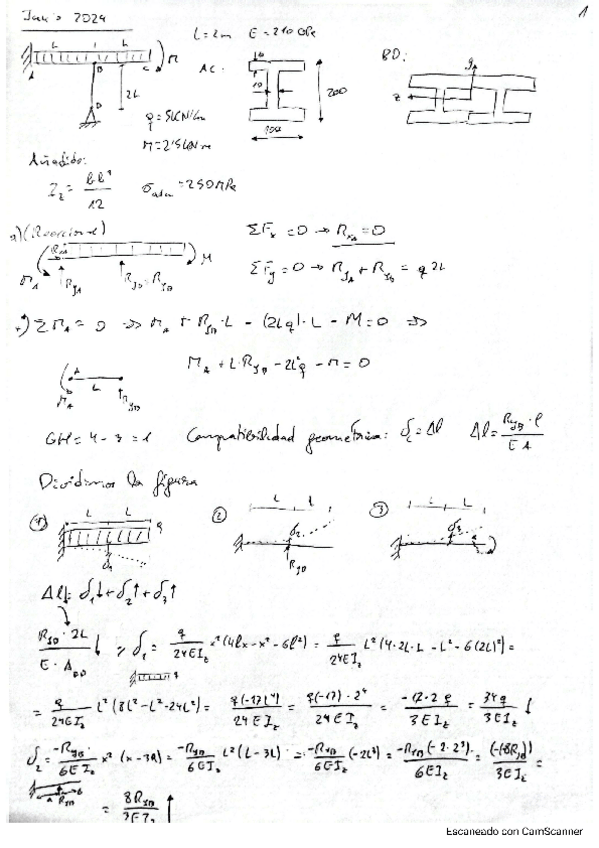 Junio 2024
1
L = 2m E = 210 GPa
L L
M
A B C
AC:
BD:
y
z
10
200
100
2L
D
q = 5kN/m
M = 2'5kNm
Añadido:
I_z = bh³/12 σ_adm = 250MPa
a) (Reacciones)
ΣF_x = 0 → R_xA = 0
M_A R_yA M
ΣF_y = 0 → R_yA + R_yD = q 2L
+) ΣM_A = 0 => M_A + R_yD · L - (2Lq) · L - M = 0 =>
A L
M_A R_yD
M_A + L·R_yD - 2L²q - M = 0
GH = 4 - 3 = 1 Compatibilidad geométrica: δ_c = Δl Δl = R_yD · l / E A
Dividimos la figura
① L L q δ1
② L L δ2 R_yD
③ L L δ3
Δl↓ = δ1↓ + δ2↑ + δ3↑
R_yD · 2L / E · A_BD ↓ δ1 = q/24EI_z x² (4lx - x² - 6l²) = q/24EI_z L² (4·2L·L - L² - 6(2L)²) =
= q/24EI_z L² (8L² - L² - 24L²) = q(-17L⁴)/24EI_z = q(-17)·2⁴/24EI_z = -17·2 q/3EI_z = 34q/3EI_z ↓
δ2 = -R_yD/6EI_z x² (x - 3a) = -R_yD/6EI_z L² (L - 3L) = -R_yD/6EI_z (-2L³) = -R_yD(-2·2³)/6EI_z = (-(-8R_yD))/3EI_z =
= 8R_yD/3EI_z ↑
Escaneado con CamScanner